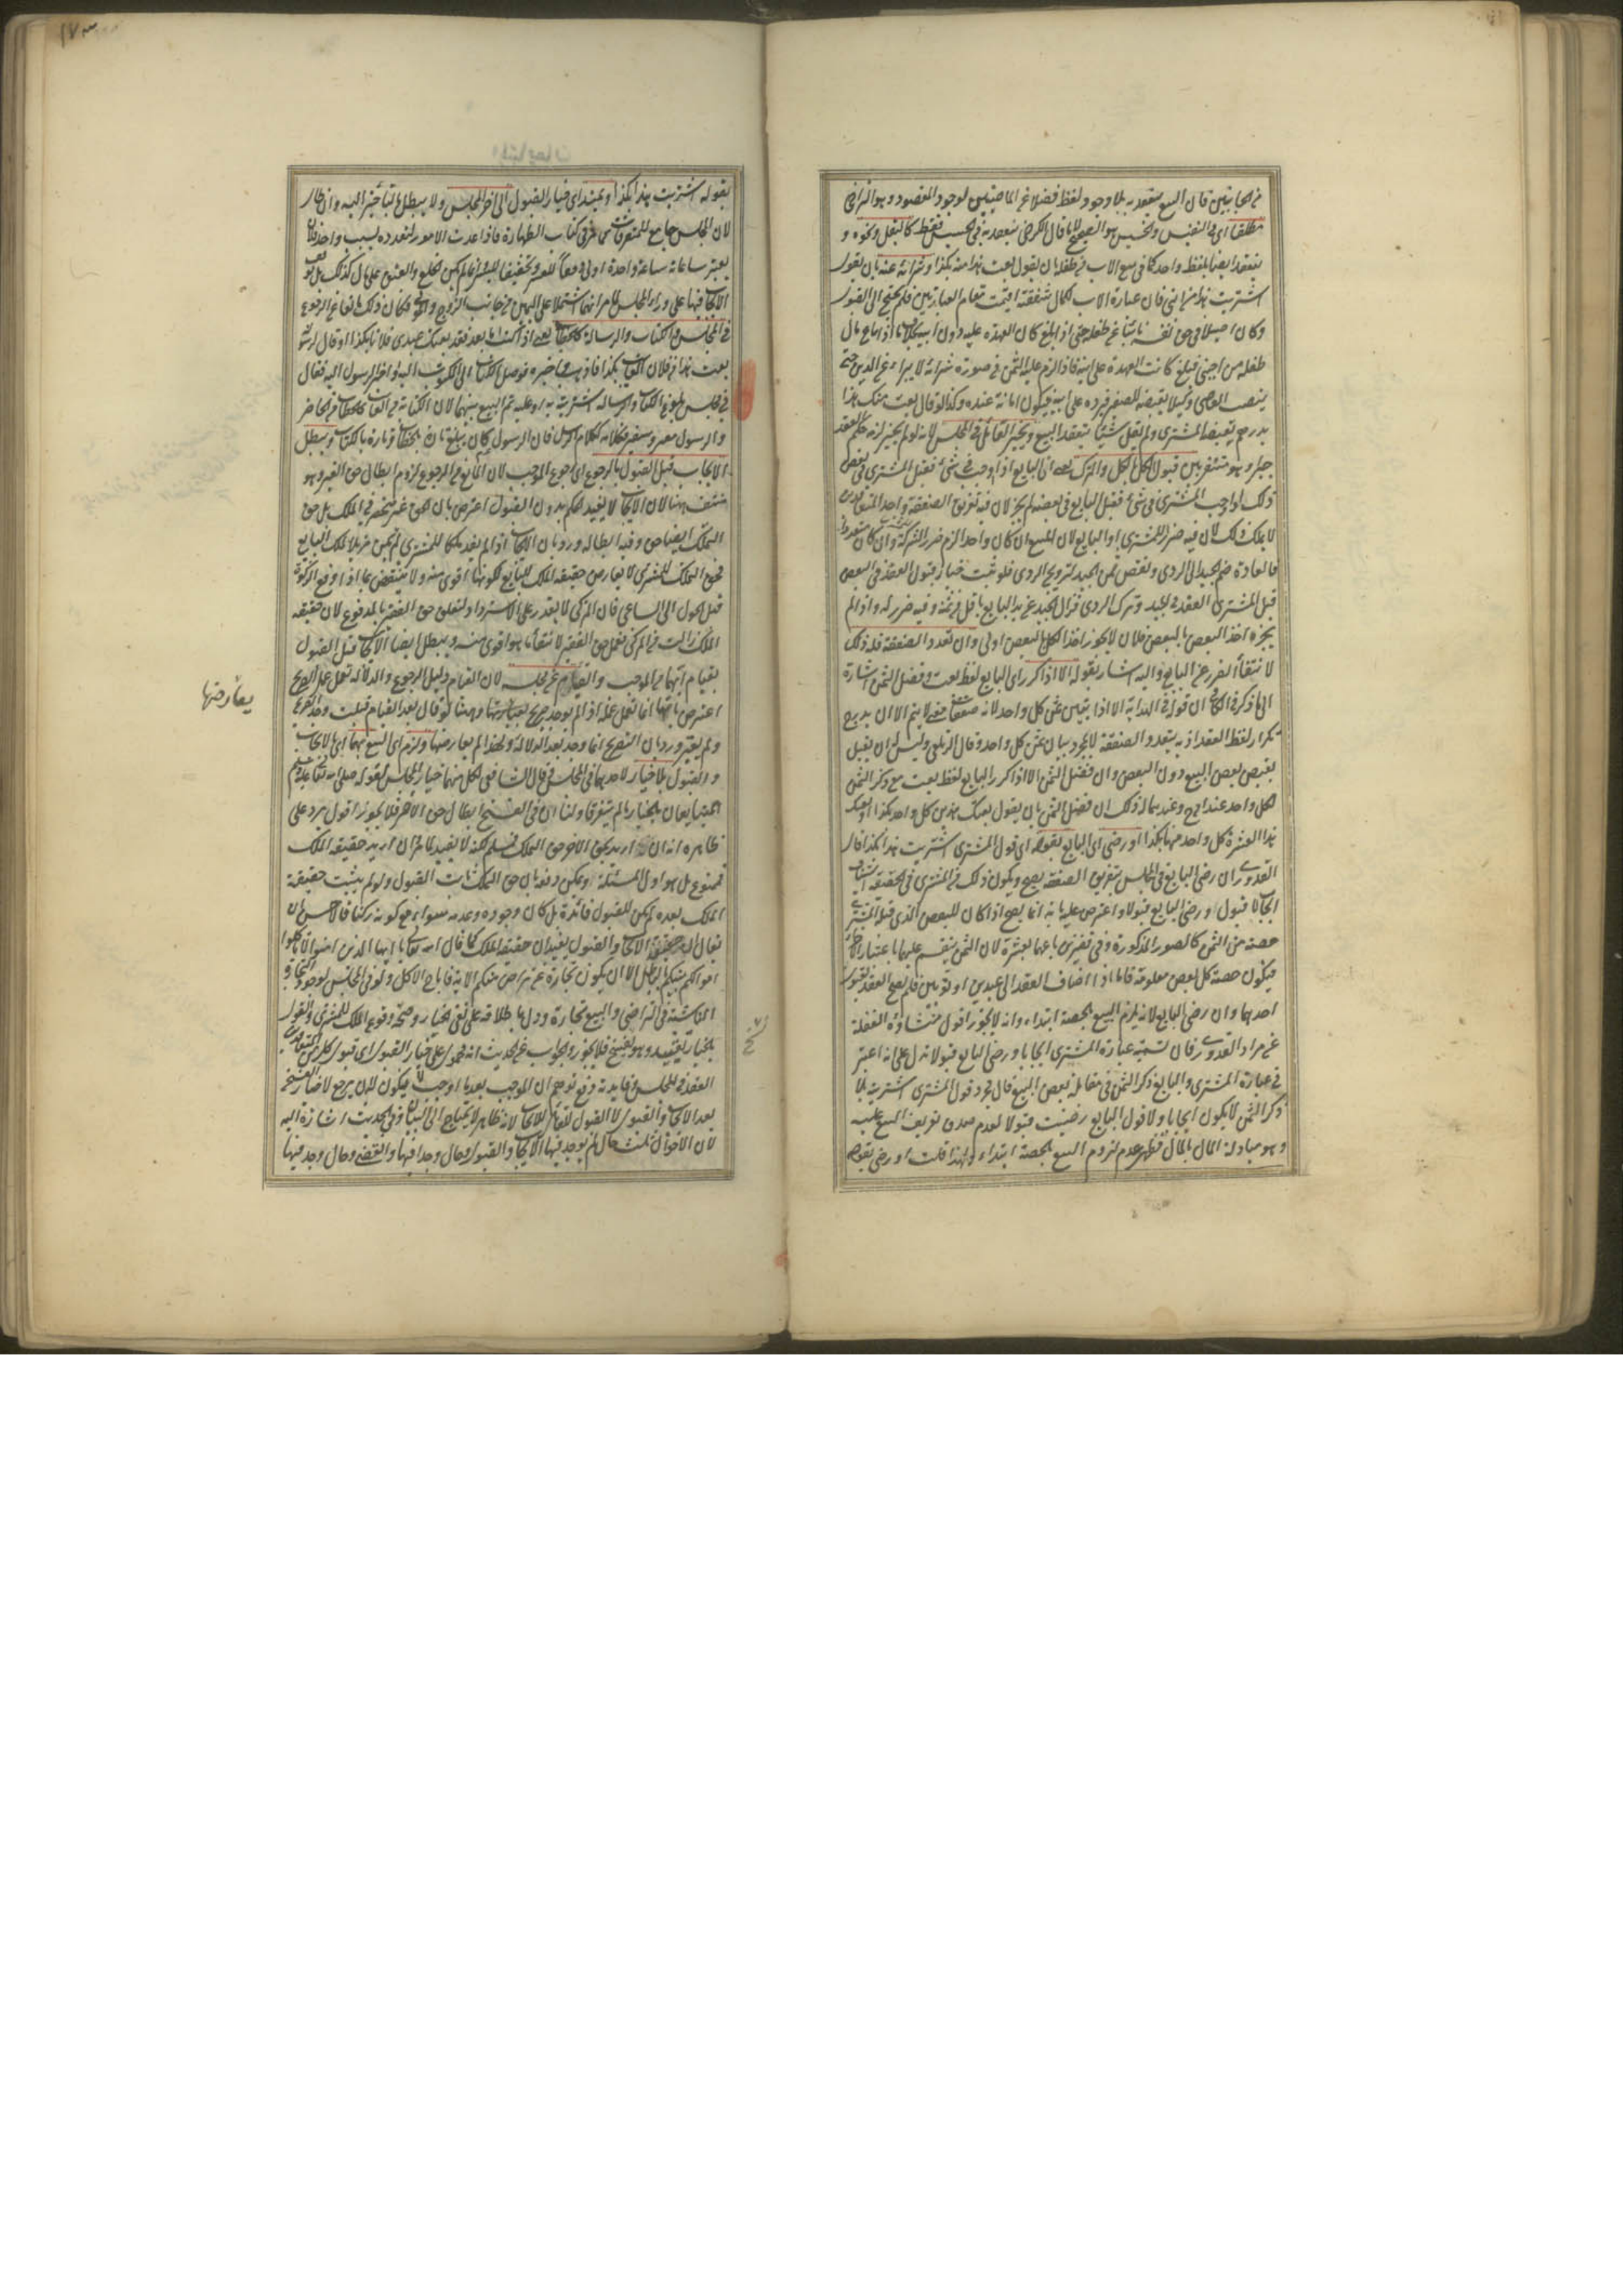 من الجانبين فان البيع ينعقد به بلا وجود لفظ فضلا عن الماضيين لوجود المقصود وهو التراضي
مطلقا اي في النفيس والخسيس هو الصحيح لا ما قال الكرخي ينعقد به في الخسيس فقط كالبقل ونحوه و
ينعقد ايضا بلفظ واحد كما في بيع الاب من طفله بان يقول بعت هذا منه بكذا وشرائه عنه بان يقول
اشتريت هذا من ابني فان عبارة الاب لكمال شفقته اقيمت مقام العبارتين فلم يحتج الى القبول
وكان اصيلا في حق نفسه نائبا عن طفله حتى اذا بلغ كان العهدة عليه دون ابيه بخلاف ما اذا باع مال
طفله من اجنبي فبلغ كانت العهدة على ابيه فاذا لزم عليه الثمن في صورة شرائه لا يبرأ عن الدين حتى
ينصب القاضي وكيلا يقبضه للصغير فيرده على ابيه فيكون امانة عنده وكذا لو قال بعت منك هذا
بدرهم فقبضه المشتري ولم يقل شيئا ينعقد البيع ويخير القابل في المجلس لانه لو لم يخير لزمه حكم العقد
جبرا وهو منتف بين قبول الكل بالكل والترك يعني ان البايع اذا اوجب في شئ فقبل المشتري في بعض
ذلك او اوجب المشتري في شئ فقبل البايع في بعضه لم يجز لان فيه تفريق الصفقة واحد المتعاقدين
لا يملك ذلك لان فيه ضرر المشتري او البايع لان المبيع ان كان واحدا لزم ضرر الشركة وان كان متعددا
فالعادة ضم الجيد الى الردي ونقص ثمن الجيد لترويج الردي فلو ثبت خيار قبول العقد في البعض
قبل المشتري العقد في الجيد وترك الردي فزال الجيد عن يد البايع باقل من ثمنه وفيه ضرر له واذا لم
يجز اخذ البعض بالبعض فلان لا يجوز اخذ الكل بالبعض اولى وان تعدد الصفقة فله ذلك
لانتفاء الضرر عن البايع واليه اشار بقوله الا اذا كرر اي البايع لفظ بعت وفصل الثمن اشارة
الى ما ذكر في الكافي ان قوله في الهداية الا اذا بين ثمن كل واحد لانه صفقات معنى لا يتم الا ان يدرج
تكرار لفظ العقد اذ به يتعدد الصفقة لا بمجرد بيان ثمن كل واحد وقال الزيلعي وليس له ان يقبل
بعض المبيع دون البعض وان فصل الثمن الا اذا كرر البايع لفظ بعت مع ذكر الثمن
لكل واحد عند ابي ح وعندهما له ذلك ان فصل الثمن بان يقول بعتك هذين كل واحد بكذا او بعتك
هذه العشرة كل واحد منها بكذا او رضي اي البايع بقوله اي قول المشتري اشتريت هذا بكذا قال
القدوري ان رضي البايع في المجلس بتفريق الصفقة يصح ويكون ذلك من المشتري في الحقيقة استيناف
ايجاب لا قبول ورضي البايع قبولا واعترض عليه بانه انما يصح اذا كان للبعض الذي قبله المشتري
حصة من الثمن كالصور المذكورة وفي قفيزين باعهما بعشرة لان الثمن ينقسم عليهما باعتبار الاجزاء
فيكون حصة كل بعض معلومة فاما اذا اضاف العقد الى عبدين او ثوبين فلم يصح العقد بقبول
احدهما وان رضي البايع لانه يلزم البيع بالحصة ابتداء وانه لا يجوز اقول منشاؤه الغفلة
عن مراد القدوري فان تسمية عبارة المشتري ايجابا ورضي البايع قبولا تدل على انه اعتبر
في عبارة المشتري والبايع ذكر الثمن في مقابلة بعض المبيع فان مجرد قول المشتري اشتريت بلا
ذكر الثمن لا يكون ايجابا ولا قول البايع رضيت قبولا لعدم صدق تعريف البيع عليه
وهو مبادلة المال بالمال فظهر عدم لزوم البيع بالحصة ابتداء ولهذا قلت او رضي بقوله
١٧٣
بقوله اشتريت هذا بكذا ويمتد اي خيار القبول الى اخر المجلس ولا يبطل بالتأخير اليه وان طال
لان المجلس جامع للمتفرقات كما عرف في كتاب الطهارة فاذا عدت الامور المتعددة بسبب واحد فلان
يعتبر ساعاته ساعة واحدة اولى دفعا للعسر وتحقيقا لليسر وانما لم يكن الخلع والعتق على مال كذلك بل توقف
الايجاب فيهما على وراء المجلس لما مر انهما اشتملا على اليمين من جانب الزوج والمولى فكان ذلك مانعا عن الرجوع
في المجلس والكتاب والرسالة كالخطاب يعني اذا كتب اما بعد فقد بعتك عبدي فلانا بكذا او قال لرسوله
بعت هذا من فلان الغائب بكذا فاذهب واخبره فوصل الكتاب الى المكتوب اليه واخبر الرسول اليه فقال
في مجلس بلوغ الكتاب والرسالة اشتريت به او قبلته تم البيع بينهما لان الكتابة من الغائب كالخطاب من الحاضر
والرسول معبر وسفير فكلامه ككلام المرسل فان الرسول كان يبلغ تارة بالخطاب وتارة بالكتاب ويبطل
الايجاب قبل القبول بالرجوع اي رجوع الموجب لان المانع من الرجوع لزوم ابطال حق الغير وهو
منتف ههنا لان الايجاب لا يفيد الحكم بدون القبول اعترض بان الحق غير منحصر في الملك بل حق
التملك ايضا حق وفيه ابطاله ورد بان الايجاب اذا لم يفد ملكا للمشتري لم يكن مزيلا لملك البايع
فحق التملك للمشتري لا يعارض حقيقة الملك للبايع لكونها اقوى منه ولا ينتقض بما اذا دفع الزكوة
قبل الحول الى الساعي فان المزكي لا يقدر على الاسترداد لتعلق حق الفقير بالمدفوع لان حقيقة
الملك زالت من المزكي فعمل حق الفقير لانتفاء ما هو اقوى منه ويبطل ايضا الايجاب قبل القبول
بقيام ايهما من الموجب والقابل عن مجلسه لان القيام دليل الرجوع والدلالة تعمل عمل الصريح
اعترض بانها انما تعمل عمله اذا لم يوجد صريح يعارضها وههنا لو قال بعد القيام قبلت وجد الصريح
ولم يعتبر ورد بان التصريح انما وجد بعد الدلالة ولهذا لم يعارضها ولزم اي البيع بهما اي بالايجاب
والقبول بلا خيار لاحدهما في المجلس قال الشافعي لكل منهما خيار المجلس لقوله صلى الله تعالى عليه وسلم
المتبايعان بالخيار ما لم يتفرقا ولنا ان في الفسخ ابطال حق الاخر فلا يجوز اقول يرد على
ظاهره انه ان اريد بحق الاخر حق التملك فمسلم لكنه لا يفيد لما مر وان اريد حقيقة الملك
فممنوع بل هو اول المسئلة ويمكن دفعه بان حق التملك ثابت القبول ولو لم يثبت حقيقة
الملك بعده لم يكن للقبول فائدة بل كان وجوده وعدمه سواء مع كونه ركنا فالاحسن ان
يقال ان حقيقة الايجاب والقبول يفيدان حقيقة الملك كما قال الله تعالى يا ايها الذين امنوا لا تأكلوا
اموالكم بينكم بالباطل الا ان يكون تجارة عن تراض منكم الاية فاباح الاكل ولو في المجلس لوجود التجارة
الناشئة من التراضي والبيع تجارة ودل باطلاقه على نفي الخيار وصحة وقوع الملك للمشتري والقول
بالخيار تقييد وهو نسخ فلا يجوز والجواب عن الحديث انه محمول على خيار القبول اي قبول كل من المتعاقدين
العقد في المجلس وفايدته دفع توهم ان الموجب بعد ما اوجب لا يكون له ان يرجع لا خيار الفسخ
بعد الايجاب والقبول لا القبول للقائل الايجاب لانه ظاهر لا يحتاج الى البيان وفي الحديث اشارة اليه
لان الاحوال ثلث حال لم يوجد فيها الايجاب والقبول وحال وجدا فيها وانقضى وحال وجد فيها
يعارضها